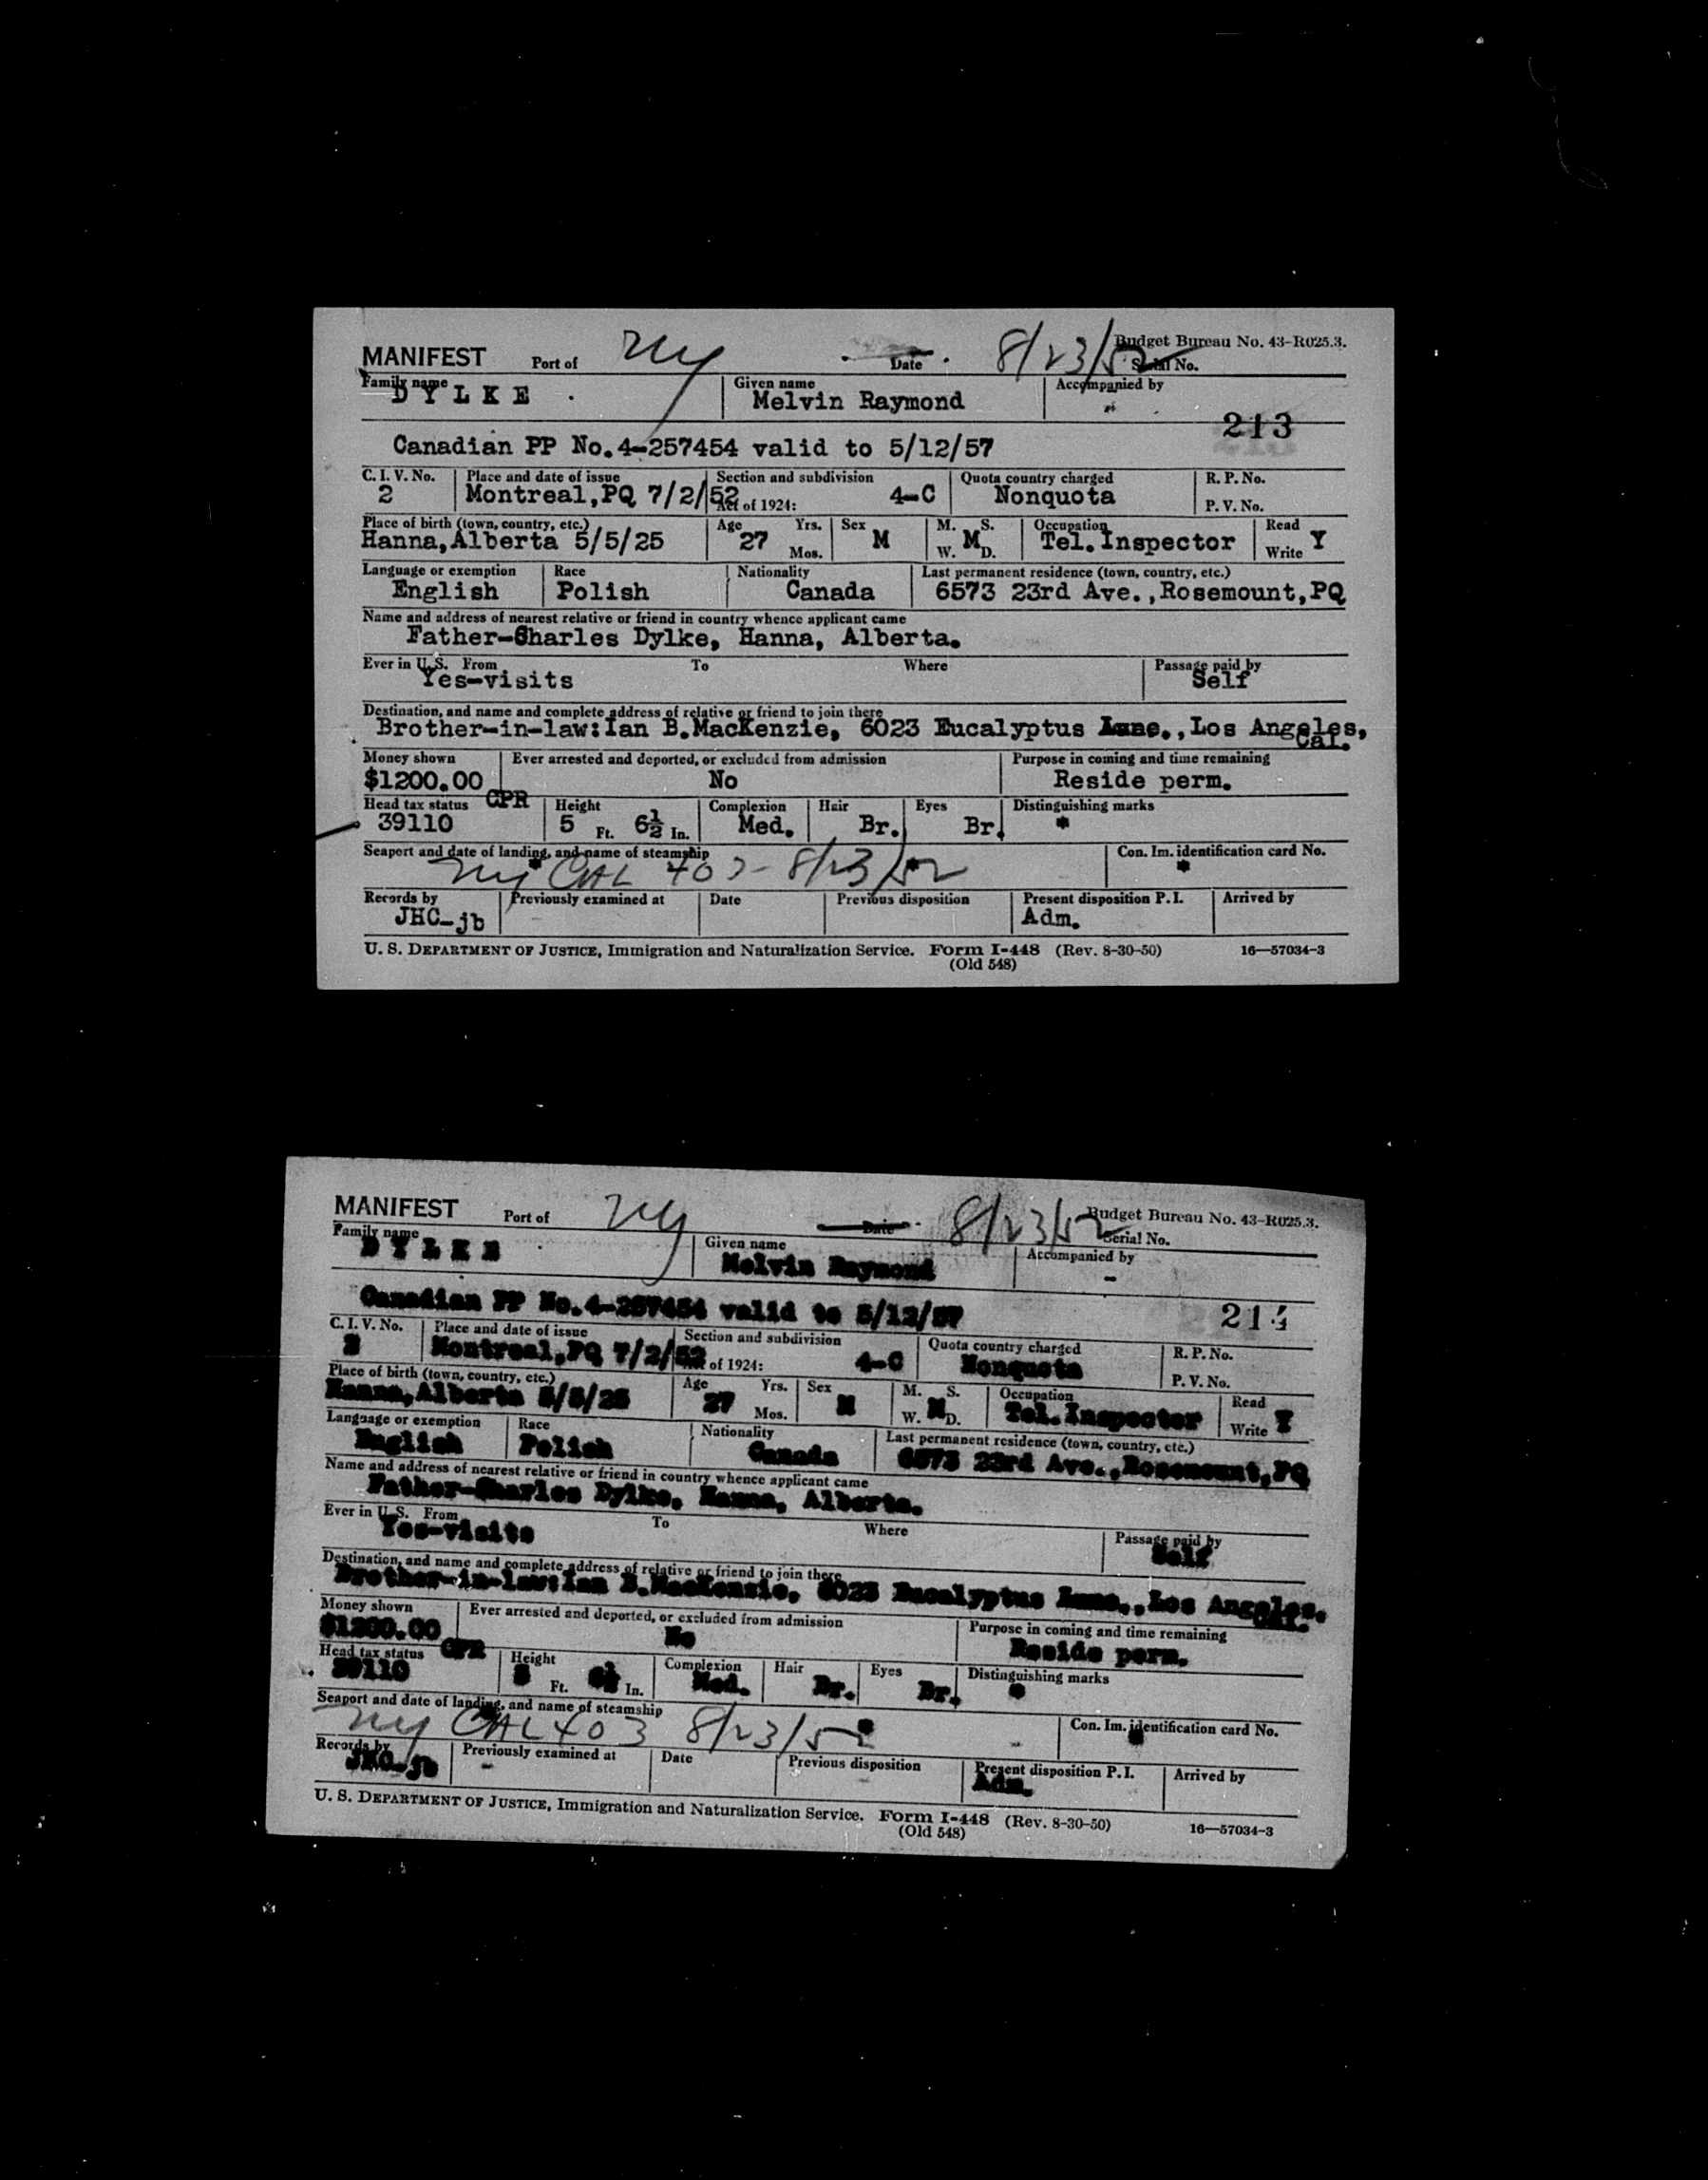 Budget Bureau No. 43-R025.3.
MANIFEST Port of NY Date 8/23/52 Serial No.
Family name DYLKE Given name Melvin Raymond Accompanied by -
213
Canadian PP No.4-257454 valid to 5/12/57
C. I. V. No. Place and date of issue Section and subdivision Quota country charged R. P. No.
2 Montreal,PQ 7/2/52 Act of 1924: 4-C Nonquota P. V. No.
Place of birth (town, country, etc.) Age Yrs. Sex M. S. Occupation Read
Hanna,Alberta 5/5/25 27 Mos. M W. M D. Tel.Inspector Write Y
Language or exemption Race Nationality Last permanent residence (town, country, etc.)
English Polish Canada 6573 23rd Ave.,Rosemount,PQ
Name and address of nearest relative or friend in country whence applicant came
Father-Charles Dylke, Hanna, Alberta.
Ever in U.S. From To Where Passage paid by
Yes-visits Self
Destination, and name and complete address of relative or friend to join there
Brother-in-law:Ian B.MacKenzie, 6023 Eucalyptus Lane.,Los Angeles,
Cal.
Money shown Ever arrested and deported, or excluded from admission Purpose in coming and time remaining
$1200.00 No Reside perm.
Head tax status CPR Height Complexion Hair Eyes Distinguishing marks
39110 5 Ft. 6½ In. Med. Br. Br.
Seaport and date of landing, and name of steamship Con. Im. identification card No.
NY CAL 403 - 8/23/52
Records by Previously examined at Date Previous disposition Present disposition P. I. Arrived by
JHC-jb Adm.
U. S. DEPARTMENT OF JUSTICE, Immigration and Naturalization Service. Form I-448 (Rev. 8-30-50) 16—57034-3
(Old 548)
Budget Bureau No. 43-R025.3.
MANIFEST Port of NY Date 8/23/52 Serial No.
Family name DYLKE Given name Melvin Raymond Accompanied by -
Canadian PP No.4-257454 valid to 5/12/57 214
C. I. V. No. Place and date of issue Section and subdivision Quota country charged R. P. No.
2 Montreal,PQ 7/2/52 Act of 1924: 4-C Nonquota P. V. No.
Place of birth (town, country, etc.) Age Yrs. Sex M. S. Occupation Read
Hanna,Alberta 5/5/25 27 Mos. M W. M D. Tel.Inspector Write Y
Language or exemption Race Nationality Last permanent residence (town, country, etc.)
English Polish Canada 6573 23rd Ave.,Rosemount,PQ
Name and address of nearest relative or friend in country whence applicant came
Father-Charles Dylke, Hanna, Alberta.
Ever in U.S. From To Where Passage paid by
Yes-visits Self
Destination, and name and complete address of relative or friend to join there
Brother-in-law:Ian B.MacKenzie, 6023 Eucalyptus Lane.,Los Angeles,
Cal.
Money shown Ever arrested and deported, or excluded from admission Purpose in coming and time remaining
$1200.00 No Reside perm.
Head tax status CPR Height Complexion Hair Eyes Distinguishing marks
39110 5 Ft. 6½ In. Med. Br. Br.
Seaport and date of landing, and name of steamship Con. Im. identification card No.
NY CAL 403 8/23/52
Records by Previously examined at Date Previous disposition Present disposition P. I. Arrived by
JHC-jb - Adm.
U. S. DEPARTMENT OF JUSTICE, Immigration and Naturalization Service. Form I-448 (Rev. 8-30-50) 16—57034-3
(Old 548)